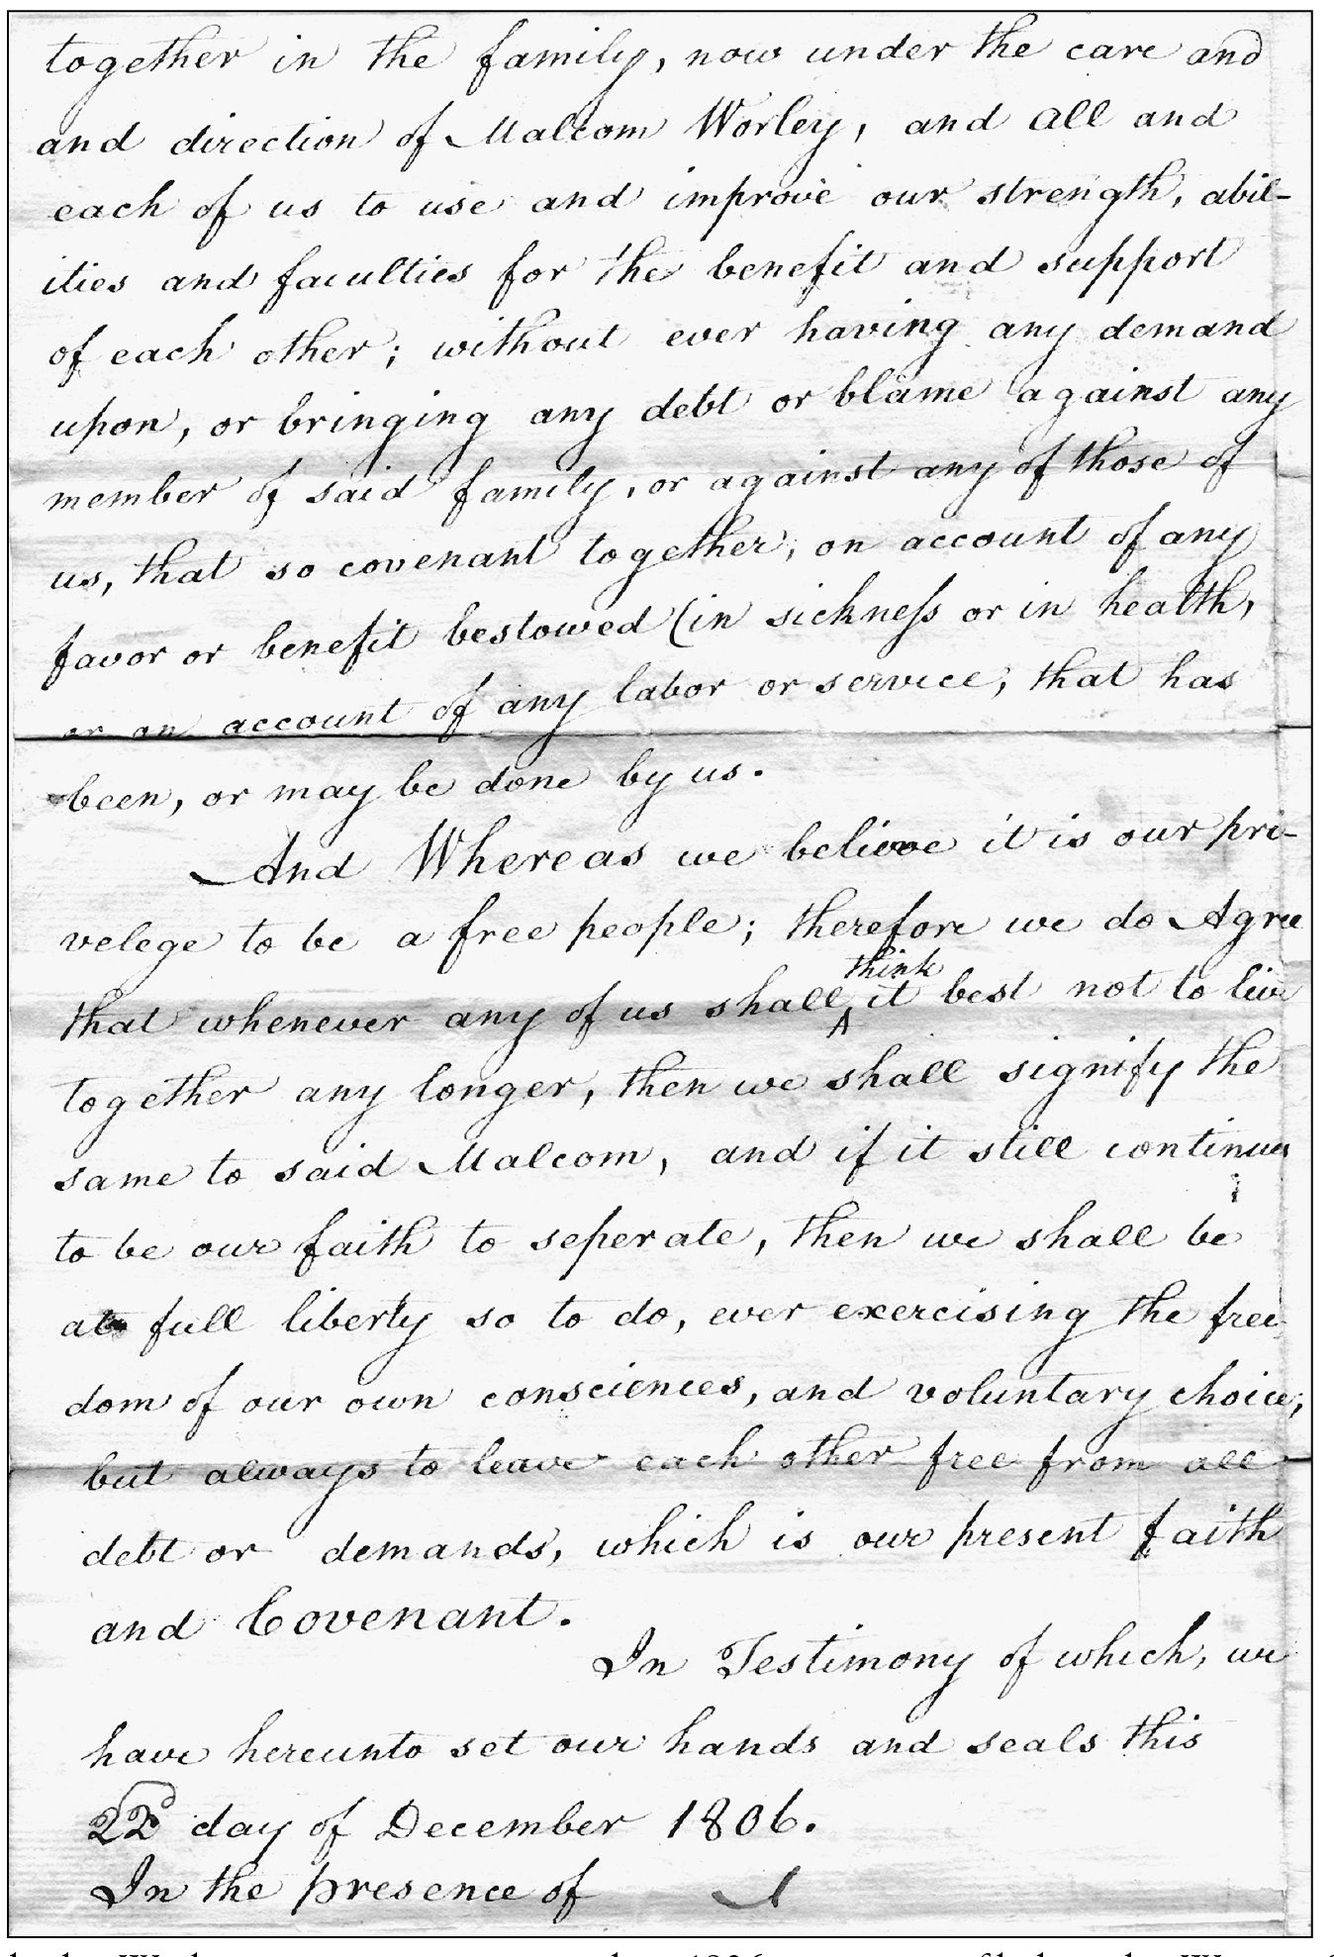 together in the family, now under the care and
and direction of Malcom Worley, and all and
each of us to use and improve our strength, abil-
ities and faculties for the benefit and support
of each other; without ever having any demand
upon, or bringing any debt or blame against any
member of said family, or against any of those of
us, that so covenant together, on account of any
favor or benefit bestowed (in sickness or in health,
or on account of any labor or service, that has
been, or may be done by us.
And Whereas we believe it is our pri-
velege to be a free people; therefore we do Agree
think
that whenever any of us shall ^ it best not to live
together any longer, then we shall signify the
same to said Malcom, and if it still continues
to be our faith to seperate, then we shall be
at full liberty so to do, ever exercising the free
dom of our own consciences, and voluntary choice;
but always to leave each other free from all
debt or demands, which is our present faith
and Covenant.
In Testimony of which, we
have hereunto set our hands and seals this
22d day of December 1806.
In the presence of